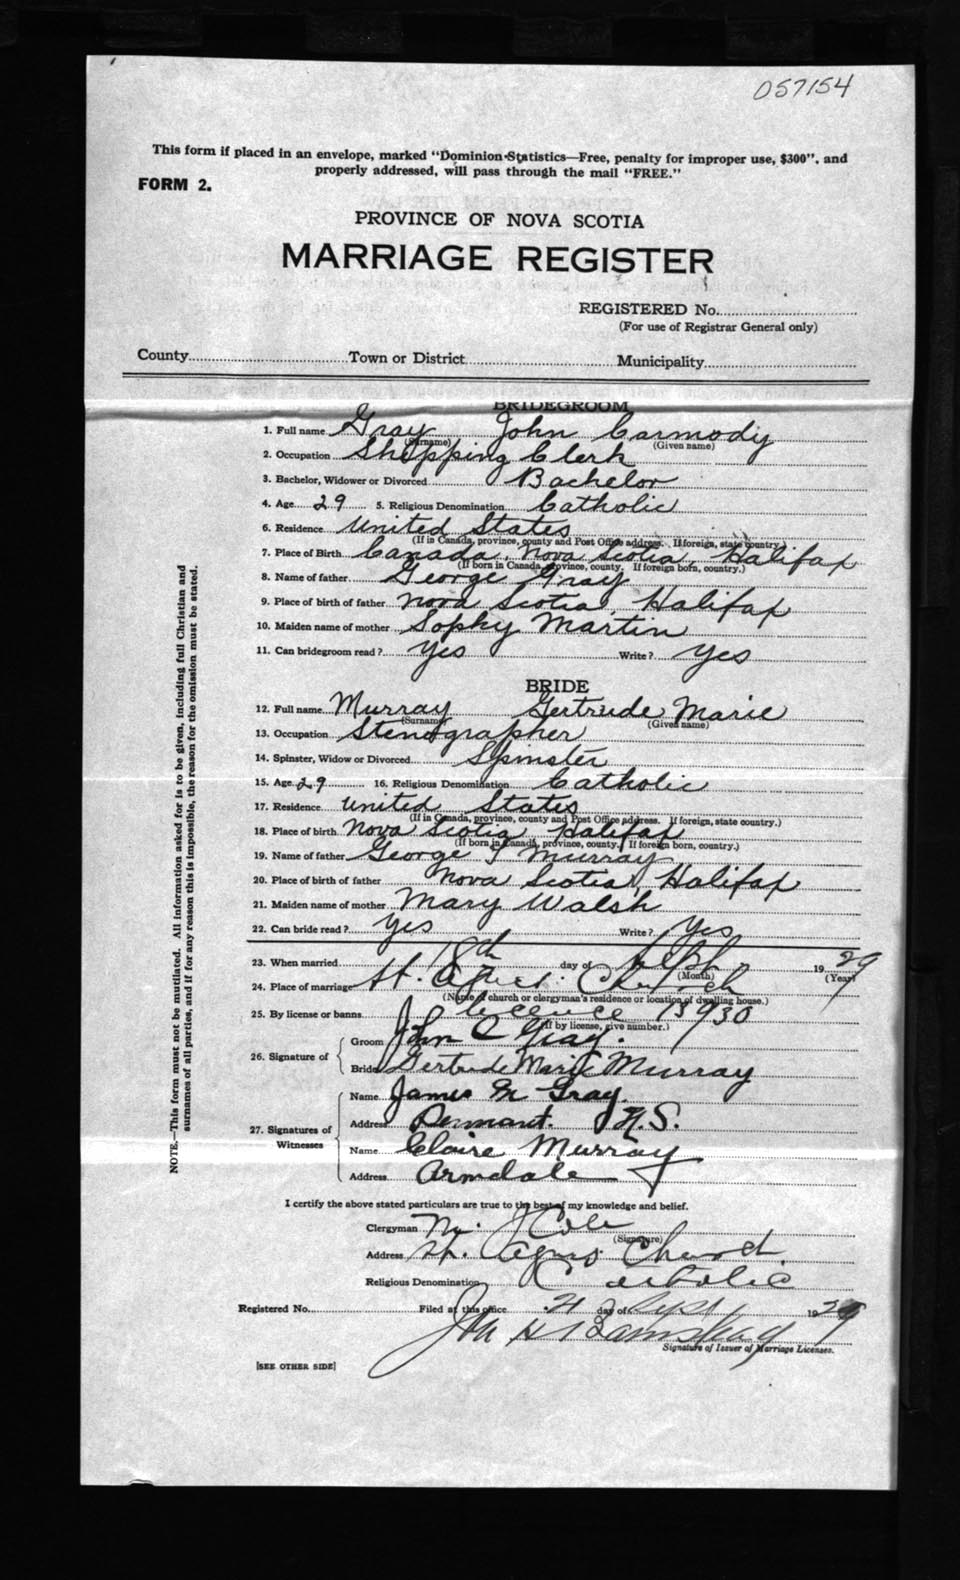 057154
This form if placed in an envelope, marked "Dominion Statistics—Free, penalty for improper use, $300", and
properly addressed, will pass through the mail "FREE."
FORM 2.
PROVINCE OF NOVA SCOTIA
MARRIAGE REGISTER
REGISTERED No.
(For use of Registrar General only)
County Town or District Municipality
BRIDEGROOM
1. Full name Gray John Carmody
(Surname) (Given name)
2. Occupation Shopping Clerk
3. Bachelor, Widower or Divorced Bachelor
4. Age 29 5. Religious Denomination Catholic
6. Residence United States
(If in Canada, province, county and Post Office address. If foreign, state country.)
7. Place of Birth Canada, Nova Scotia, Halifax
(If born in Canada, province, county. If foreign born, country.)
8. Name of father George Gray
9. Place of birth of father Nova Scotia, Halifax
10. Maiden name of mother Sophy Martin
11. Can bridegroom read? Yes Write? Yes
BRIDE
12. Full name Murray Gertrude Marie
(Surname) (Given name)
13. Occupation Stenographer
14. Spinster, Widow or Divorced Spinster
15. Age 29 16. Religious Denomination Catholic
17. Residence United States
(If in Canada, province, county and Post Office address. If foreign, state country.)
18. Place of birth Nova Scotia Halifax
(If born in Canada, province, county. If foreign born, country.)
19. Name of father George J Murray
20. Place of birth of father Nova Scotia, Halifax
21. Maiden name of mother Mary Walsh
22. Can bride read? Yes Write? Yes
23. When married 18th day of Sept 1929
(Month) (Year)
24. Place of marriage St. Agnes Church
(Name of church or clergyman's residence or location of dwelling house.)
25. By license or banns licence 13930
(If by license, give number.)
26. Signature of
Groom John C Gray.
Bride Gertrude Marie Murray
27. Signatures of Witnesses
Name James M Gray.
Address N.S.
Name Claire Murray
Address Armdale
I certify the above stated particulars are true to the best of my knowledge and belief.
Clergyman M. J Cole
(Signature)
Address St. Agnes Church
Religious Denomination Catholic
Registered No. Filed at this office 21 day of Sept 1929
Signature of Issuer of Marriage Licenses.
[SEE OTHER SIDE]
NOTE.—This form must not be mutilated. All information asked for is to be given, including full Christian and
surnames of all parties, and if for any reason this is impossible, the reason for the omission must be stated.